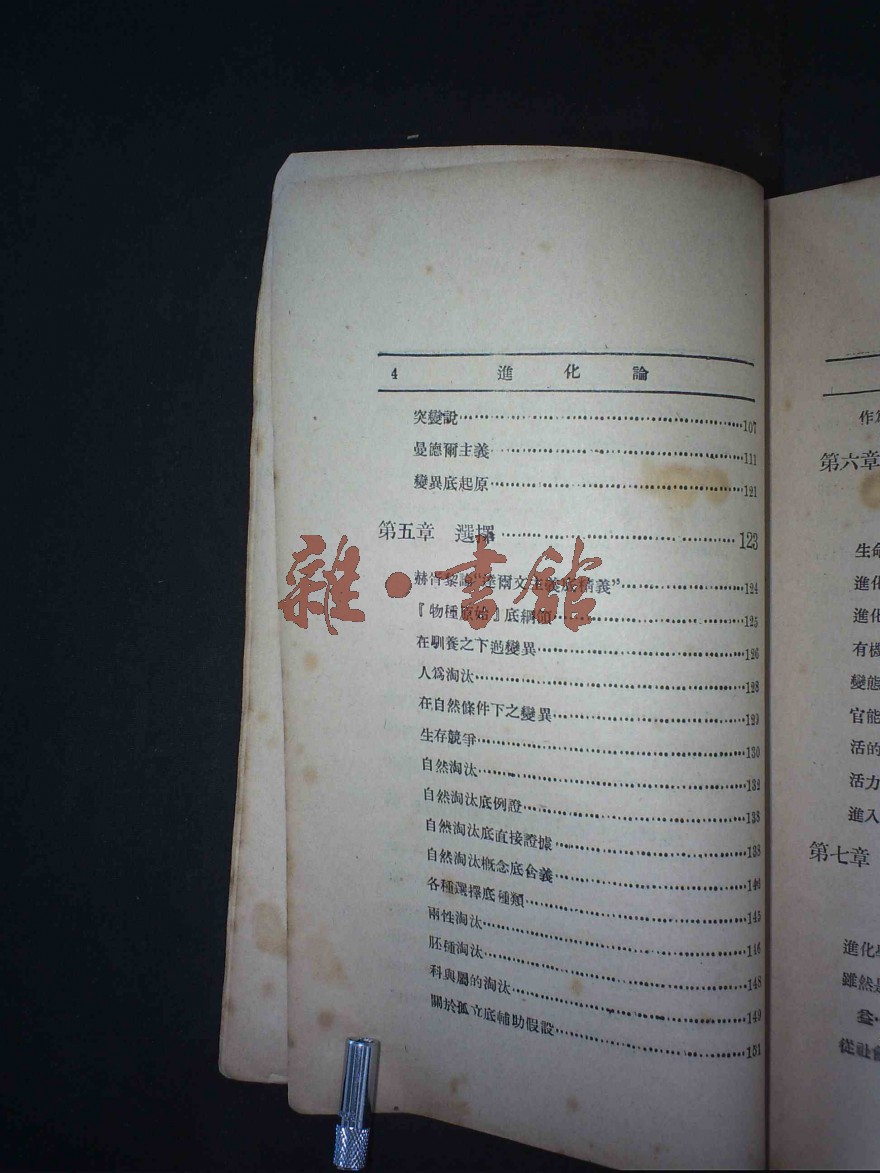 4 進化論
突變說 107
曼德爾主義 111
變異底起原 121
第五章 選擇 123
赫胥黎論“達爾文主義底精義” 124
『物種原始』底綱領 125
在馴養之下的變異 126
人為淘汰 128
在自然條件下之變異 129
生存競爭 130
自然淘汰 132
自然淘汰底例證 133
自然淘汰底直接證據 138
自然淘汰概念底含義 140
各種選擇底種類 145
兩性淘汰 146
胚種淘汰 148
科與屬的淘汰 149
關於孤立底輔助假設 151
雜·書館
第六章
生命
進化
進化
有機
變態
官能
活的
活力
進入
第七章
進化
雖然是
益
從社會